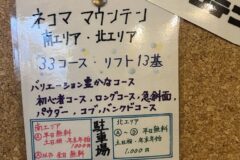 ネコマ マウンテン
南エリア・北エリア
33コース・リフト13基
バリエーション豊かなコース
初心者コース、ロングコース、急斜面、
パウダー、コブ、バンクドコース
駐車場
南エリア
平日無料
土日祝・年末年始
1,000円
平日・休日 無料
北エリア
平日無料
土日祝・年末年始
1,000円